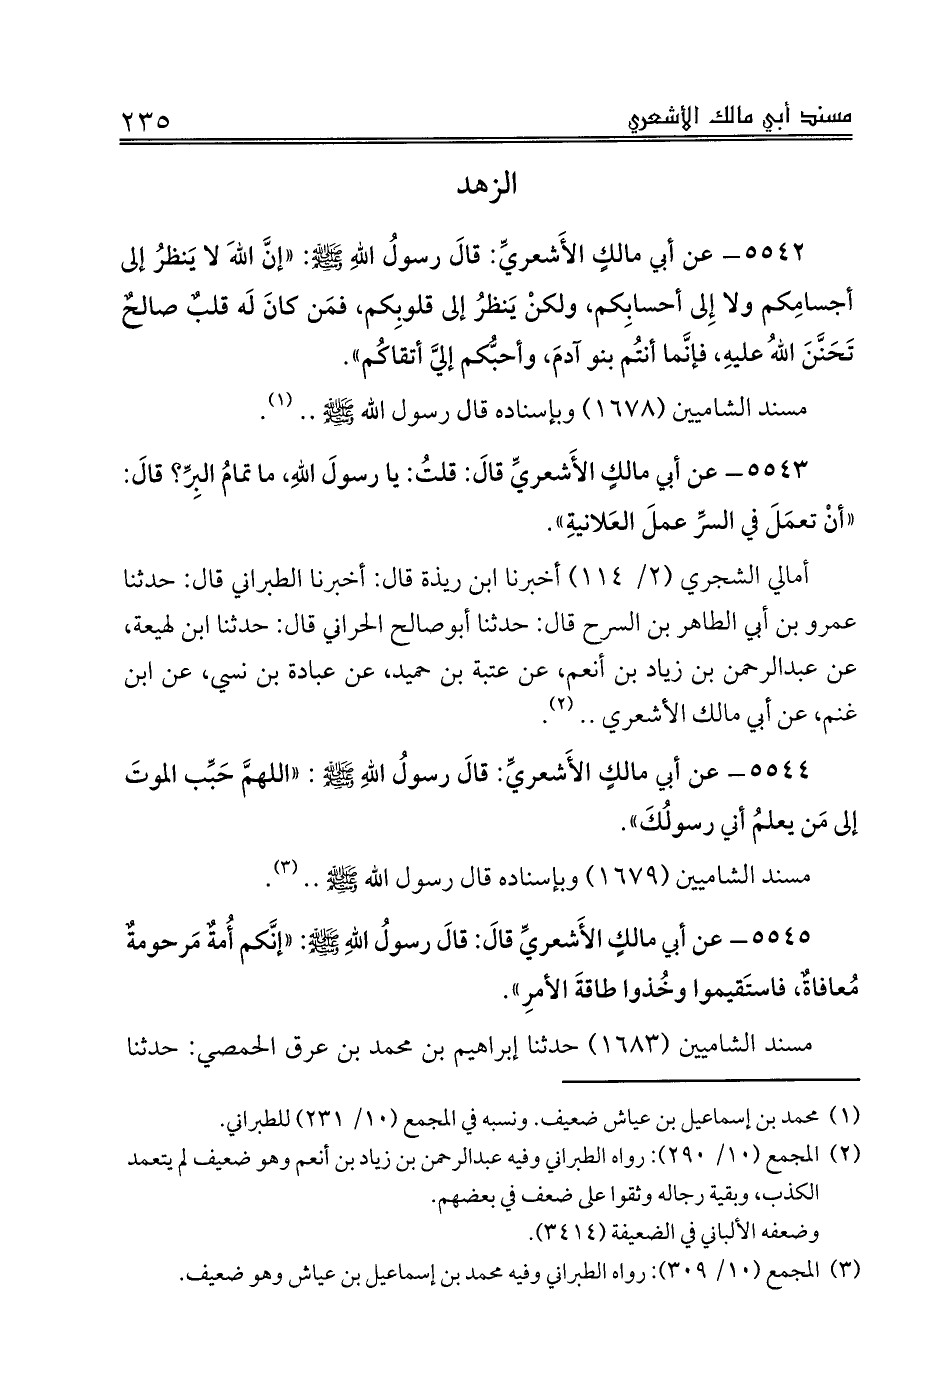 مسند أبي مالك الأشعري ٢٣٥
الزهد
٥٥٤٢ـ عن أبي مالكٍ الأَشعريِّ: قالَ رسولُ اللهِ ﷺ: «إنَّ اللهَ لا يَنظرُ إلى
أجسامِكم ولا إِلى أحسابِكم، ولكنْ يَنظرُ إلى قلوبِكم، فمَن كانَ لَه قلبٌ صالحٌ
تَحَنَّنَ اللهُ عليهِ، فإنَّما أنتُم بنو آدمَ، وأحبُّكم إليَّ أتقاكُم».
مسند الشاميين (١٦٧٨) وبإسناده قال رسول الله ﷺ .. (١).
٥٥٤٣ـ عن أبي مالكٍ الأَشعريِّ قالَ: قلتُ: يا رسولَ اللهِ، ما تمامُ البِرِّ؟ قالَ:
«أنْ تعمَلَ في السرِّ عملَ العَلانيةِ».
أمالي الشجري (٢/ ١١٤) أخبرنا ابن ريذة قال: أخبرنا الطبراني قال: حدثنا
عمرو بن أبي الطاهر بن السرح قال: حدثنا أبوصالح الحراني قال: حدثنا ابن لهيعة،
عن عبدالرحمن بن زياد بن أنعم، عن عتبة بن حميد، عن عبادة بن نسي، عن ابن
غنم، عن أبي مالك الأشعري .. (٢).
٥٥٤٤ـ عن أبي مالكٍ الأَشعريِّ: قالَ رسولُ اللهِ ﷺ : «اللهمَّ حَبِّب الموتَ
إلى مَن يعلمُ أني رسولُكَ».
مسند الشاميين (١٦٧٩) وبإسناده قال رسول الله ﷺ .. (٣).
٥٥٤٥ـ عن أبي مالكٍ الأَشعريِّ قالَ: قالَ رسولُ اللهِ ﷺ: «إنَّكم أُمةٌ مَرحومةٌ
مُعافاةٌ، فاستَقيموا وخُذوا طاقةَ الأمرِ».
مسند الشاميين (١٦٨٣) حدثنا إبراهيم بن محمد بن عرق الحمصي: حدثنا
(١) محمد بن إسماعيل بن عياش ضعيف. ونسبه في المجمع (١٠/ ٢٣١) للطبراني.
(٢) المجمع (١٠/ ٢٩٠): رواه الطبراني وفيه عبدالرحمن بن زياد بن أنعم وهو ضعيف لم يتعمد
الكذب، وبقية رجاله وثقوا على ضعف في بعضهم.
وضعفه الألباني في الضعيفة (٣٤١٤).
(٣) المجمع (١٠/ ٣٠٩): رواه الطبراني وفيه محمد بن إسماعيل بن عياش وهو ضعيف.